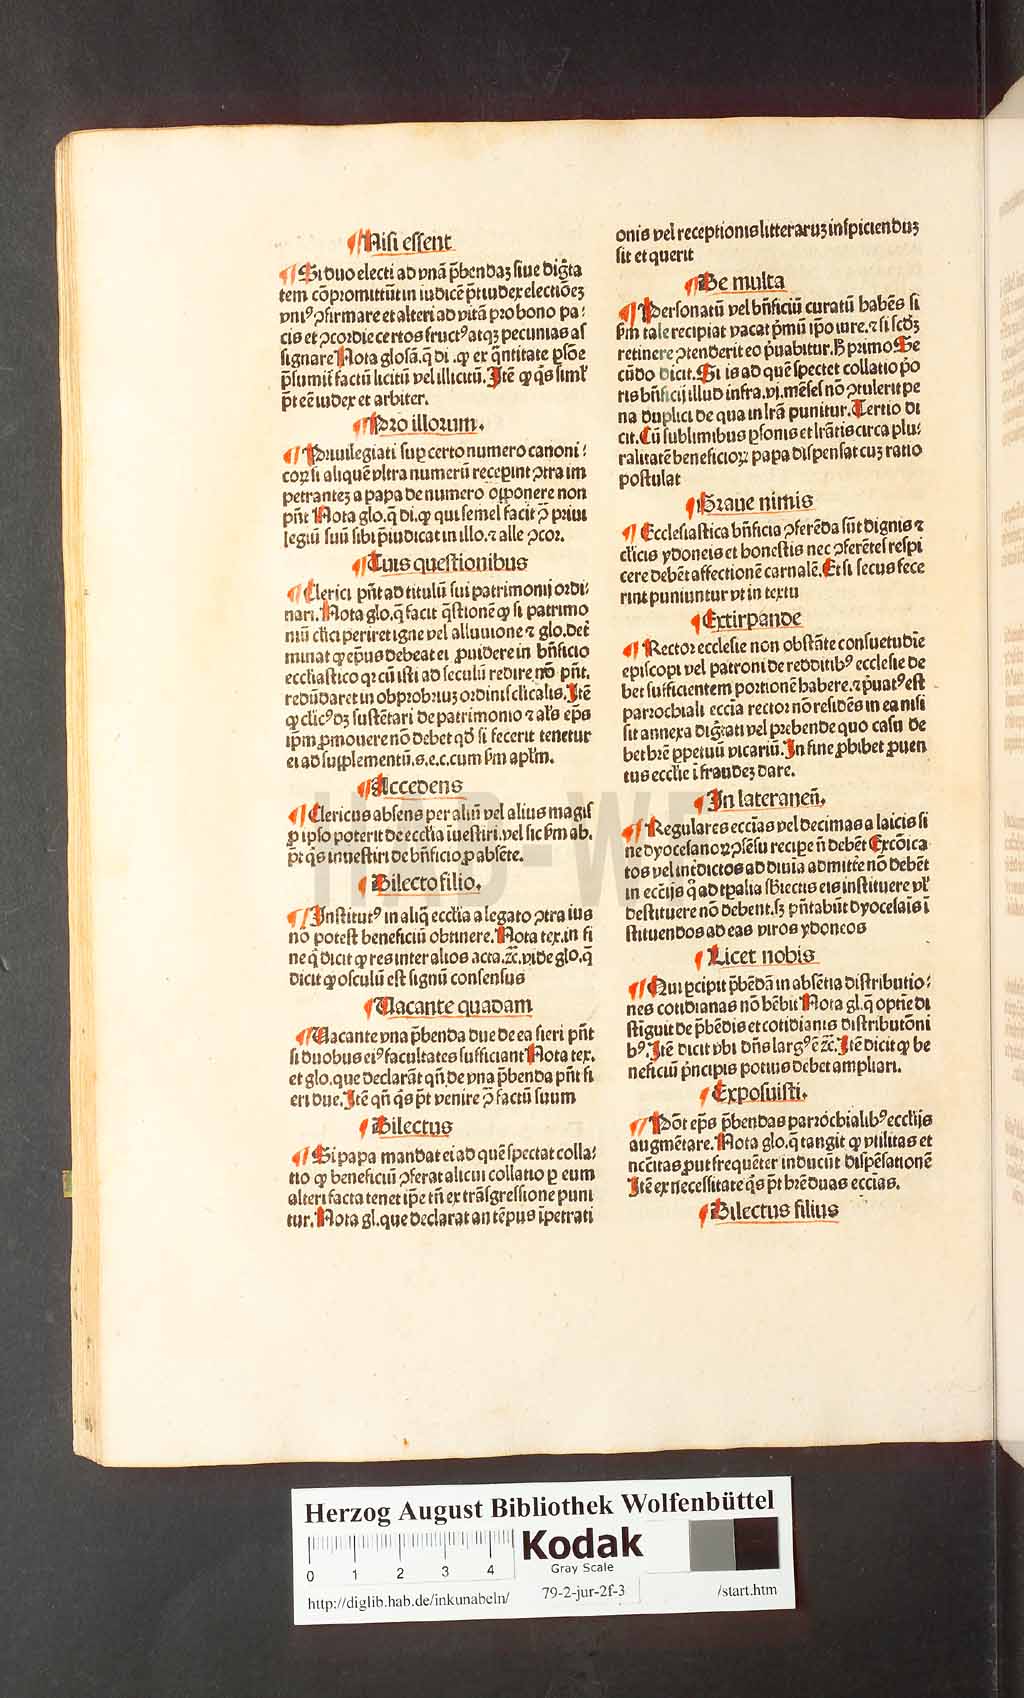 Nisi essent
Si duo electi ad vnā p̄bendaꝫ siue dig̃ta
tem cōpromittūt in iudicē p̄t iudex electiōeꝫ
vniꝰ ꝯfirmare et alteri ad vitā pro bono pa⸗
cis et ꝯcordie certos fructꝰ atqꝫ pecunias as
signare Nota glosā. q̄ di. ꝙ ex q̄ntitate ꝑsōe
p̄sumit̃ factū licitū vel illicitū. Itē ꝙ q̄s siml̃
p̄t eē iudex et arbiter.
Pro illorum.
Priuilegiati suꝑ certo numero canoni⸗
coꝝ si aliquē vltra numerū receꝑint ꝯtra im
petrantes a papa de numero opponere non
pn̄t Nota glo. q̄ di. ꝙ qui semel facit ꝯ̄ priui
legiū suū sibi p̄iudicat in illo. ⁊ alle ꝯcor.
Tuis questionibus
Clerici pn̄t ad titulū sui patrimonij ordi⸗
nari. Nota glo. q̄ facit q̄stionē ꝙ si patrimo
niū cl̃ici periret igne vel alluuione ⁊ glo. det̃
minat ꝙ ep̄us debeat ei ꝓuidere in bn̄ficio
eccl̃iastico qꝛ cū isti ad seculū redire nō pn̄t.
redūdaret in obprobriuꝫ ordinis cl̃icalis. Itē
ꝙ cl̃icꝰ dꝫ sustētari de patrimonio ⁊ al̃s ep̄s
ip̄m ꝓmouere nō debet qd̛ si fecerit tenetur
ei ad supplementū. s. e. c. cum ẜm apl̃m.
Accedens
Clericus absens per aliū vel alius magis
ꝓ ipso poterit de eccl̃ia īuestiri. vel sic ẜm ab.
p̄t q̄s inuestiri de bn̄ficio ꝓ absēte.
Dilecto filio.
Institutꝰ in aliq̄ eccl̃ia a legato ꝯtra ius
nō potest beneficiū obtinere. Nota tex. in fi
ne q̄ dicit ꝙ res inter alios acta. ⁊c̄. vide glo. q̄
dicit ꝙ osculū est signū consensus
Vacante quadam
Vacante vna p̄benda due de ea fieri pn̄t
si duobus eiꝰ facultates sufficiant Nota tex.
et glo. que declarāt qn̄ de vna p̄benda pn̄t fi
eri due. Itē qn̄ q̄s p̄t venire ꝯ̄ factū suum
Dilectus
Si papa mandat ei ad quē spectat colla⸗
tio ꝙ beneficiū ꝯferat alicui collatio ꝑ eum
alteri facta tenet ip̄e tn̄ ex trāsgressione puni
tur. Nota gl. que declarat an tēpus īpetrati
onis vel receptionis litterarꝫ inspiciendꝫ
sit et querit
De multa
Personatū vel bn̄ficiū curatū habēs si
ẜm tale recipiat vacat p̄mū ip̄o iure. ⁊ si scd̛ꝫ
retinere ꝯtenderit eo p̄uabitur. H̄ primo Se
cūdo dicit. Si is ad quē spectet collatio p̄o
ris bn̄ficij illud infra. vj. mēses nō ꝯtulerit pe
na duplici de qua in lr̄a punitur. Tertio di
cit. Cū sublimibus ꝑsonis et lr̄atis circa plu⸗
ralitatē beneficioꝝ papa dispensat cuꝫ ratio
postulat
Graue nimis
Ecclesiastica bn̄ficia ꝯferēda sūt dignis ⁊
cl̃icis ydoneis et honestis nec ꝯferētes respi
cere debēt affectionē carnalē. Et si secus fece
rint puniuntur vt in textu
Extirpande
Rector ecclesie non obstāte consuetudīe
episcopi vel patroni de redditibꝰ ecclesie de
bet sufficientem portionē habere. ⁊ p̄uatꝰ est
parrochiali eccīa rector nō residēs in ea nisi
sit annexa dig̃tati vel prebende quo casu de
bet hr̄e ꝑpetuū vicariū. In fine ꝓhibet ꝓuen
tus eccl̃ie ī fraudeꝫ dare.
In lateranen̄.
Regulares eccīas vel decimas a laicis si
ne dyocesanoꝝ ꝯsēsu reciꝑe n̄ debēt Excōica
tos vel int̃dictos ad diuīa admitte̾ nō debēt
in ecc̄ijs q̄ ad tꝑalia sb̄iectus eis instituere vl̃
destituere nō debent. sꝫ pn̄tabūt dyocesāis ī
stituendos ad eas viros ydoneos
Licet nobis
Qui ꝑcipit p̄bēdā in absētia distributio⸗
nes cotidianas nō hēbit Nota gl. q̄ optīe di
stīguit de p̄bēdis et cotidianis distributōni
bꝰ. Itē dicit vbi dn̄s largꝰ ē ⁊c̄. Itē dicit ꝙ be
neficiū p̄ncipis potius debet ampliari.
Exposuisti.
Pōt ep̄s p̄bendas parrochialibꝰ eccl̃ijs
augmētare. Nota glo. q̄ tangit ꝙ vtilitas et
nc̄citas ꝓut frequēter inducūt dispēsationē
Itē ex necessitate q̄s p̄t hr̄e duas eccīas.
Dilectus filius
HAB-WF
Herzog August Bibliothek Wolfenbüttel
0 1 2 3 4
Kodak
Gray Scale
http://diglib.hab.de/inkunabeln/ 79-2-jur-2f-3 /start.htm